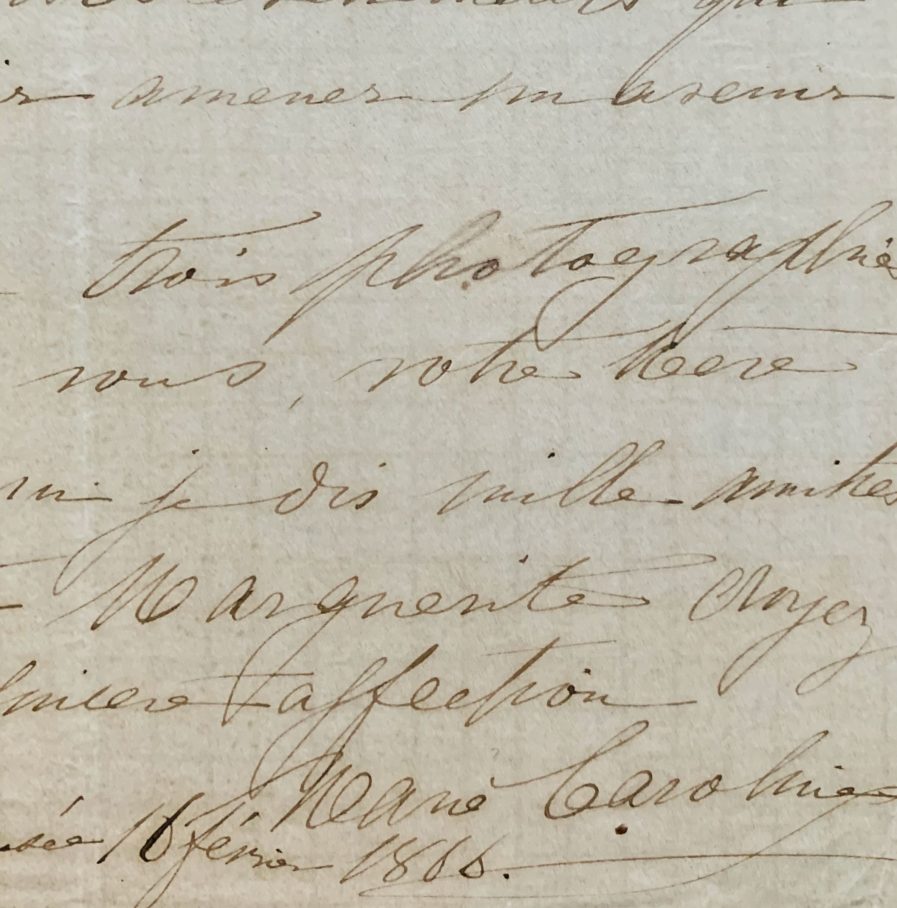 qui
amener un avenir
trois photographie
vous, votre Mere
je dis mille amities
Marguerite Croyez
sincere affection
Marie Caroline
16 février 1866.